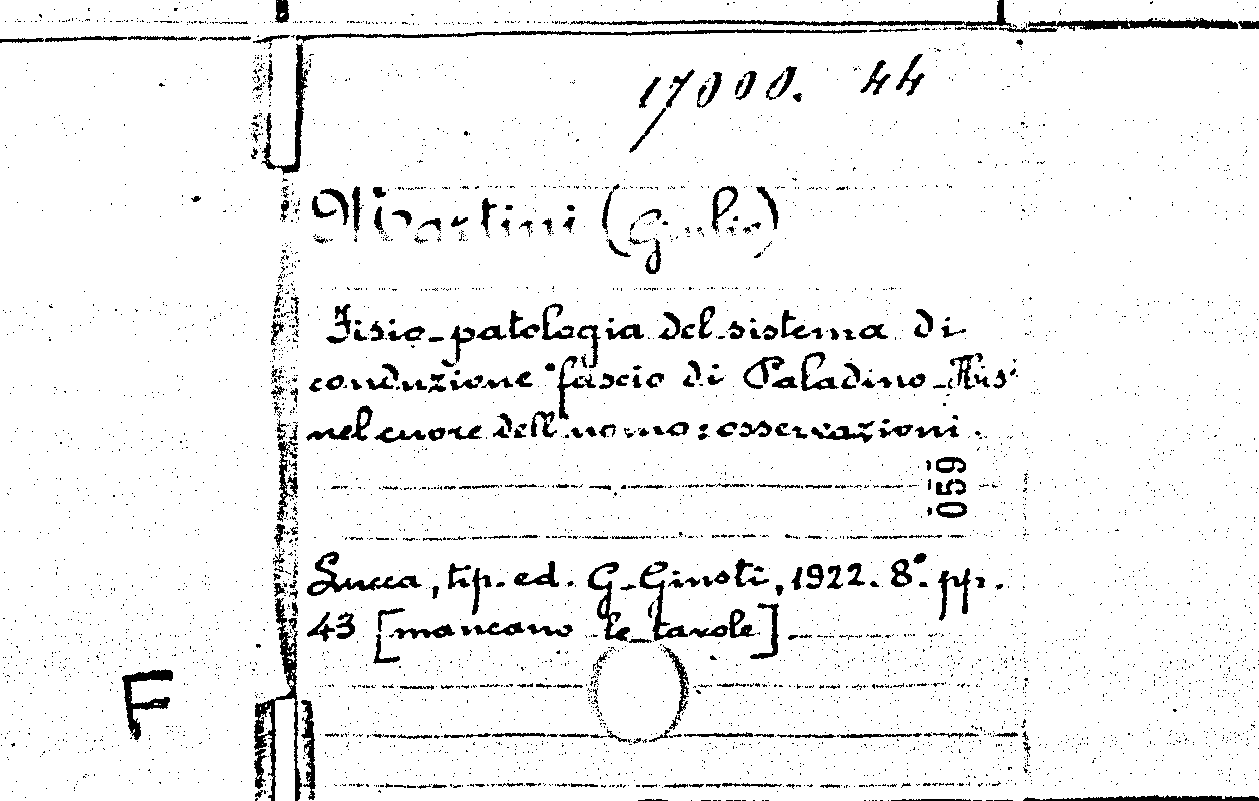 17000. 44
Martini (Giulio)
Fisio-patologia del sistema di
conduzione "fascio di Paladino-His"
nel cuore dell'uomo: osservazioni.
059
Lucca, tip. ed. G. Giusti, 1922. 8°. pp.
43 [mancano le tavole].
F